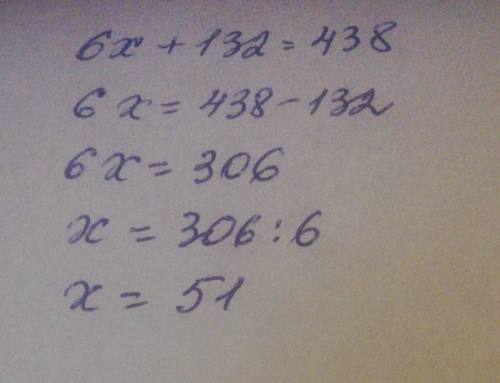 6x + 132 = 438
6x = 438 - 132
6x = 306
x = 306 : 6
x = 51